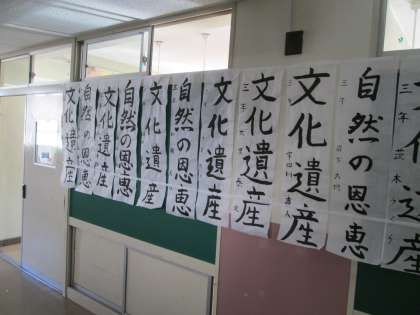 文化遺産
自然の恩恵
文化遺産
自然の恩恵
文化遺産
自然の恩恵
文化遺産
文化遺産
文化遺産
自然の恩恵
三年 茂木
文化遺産